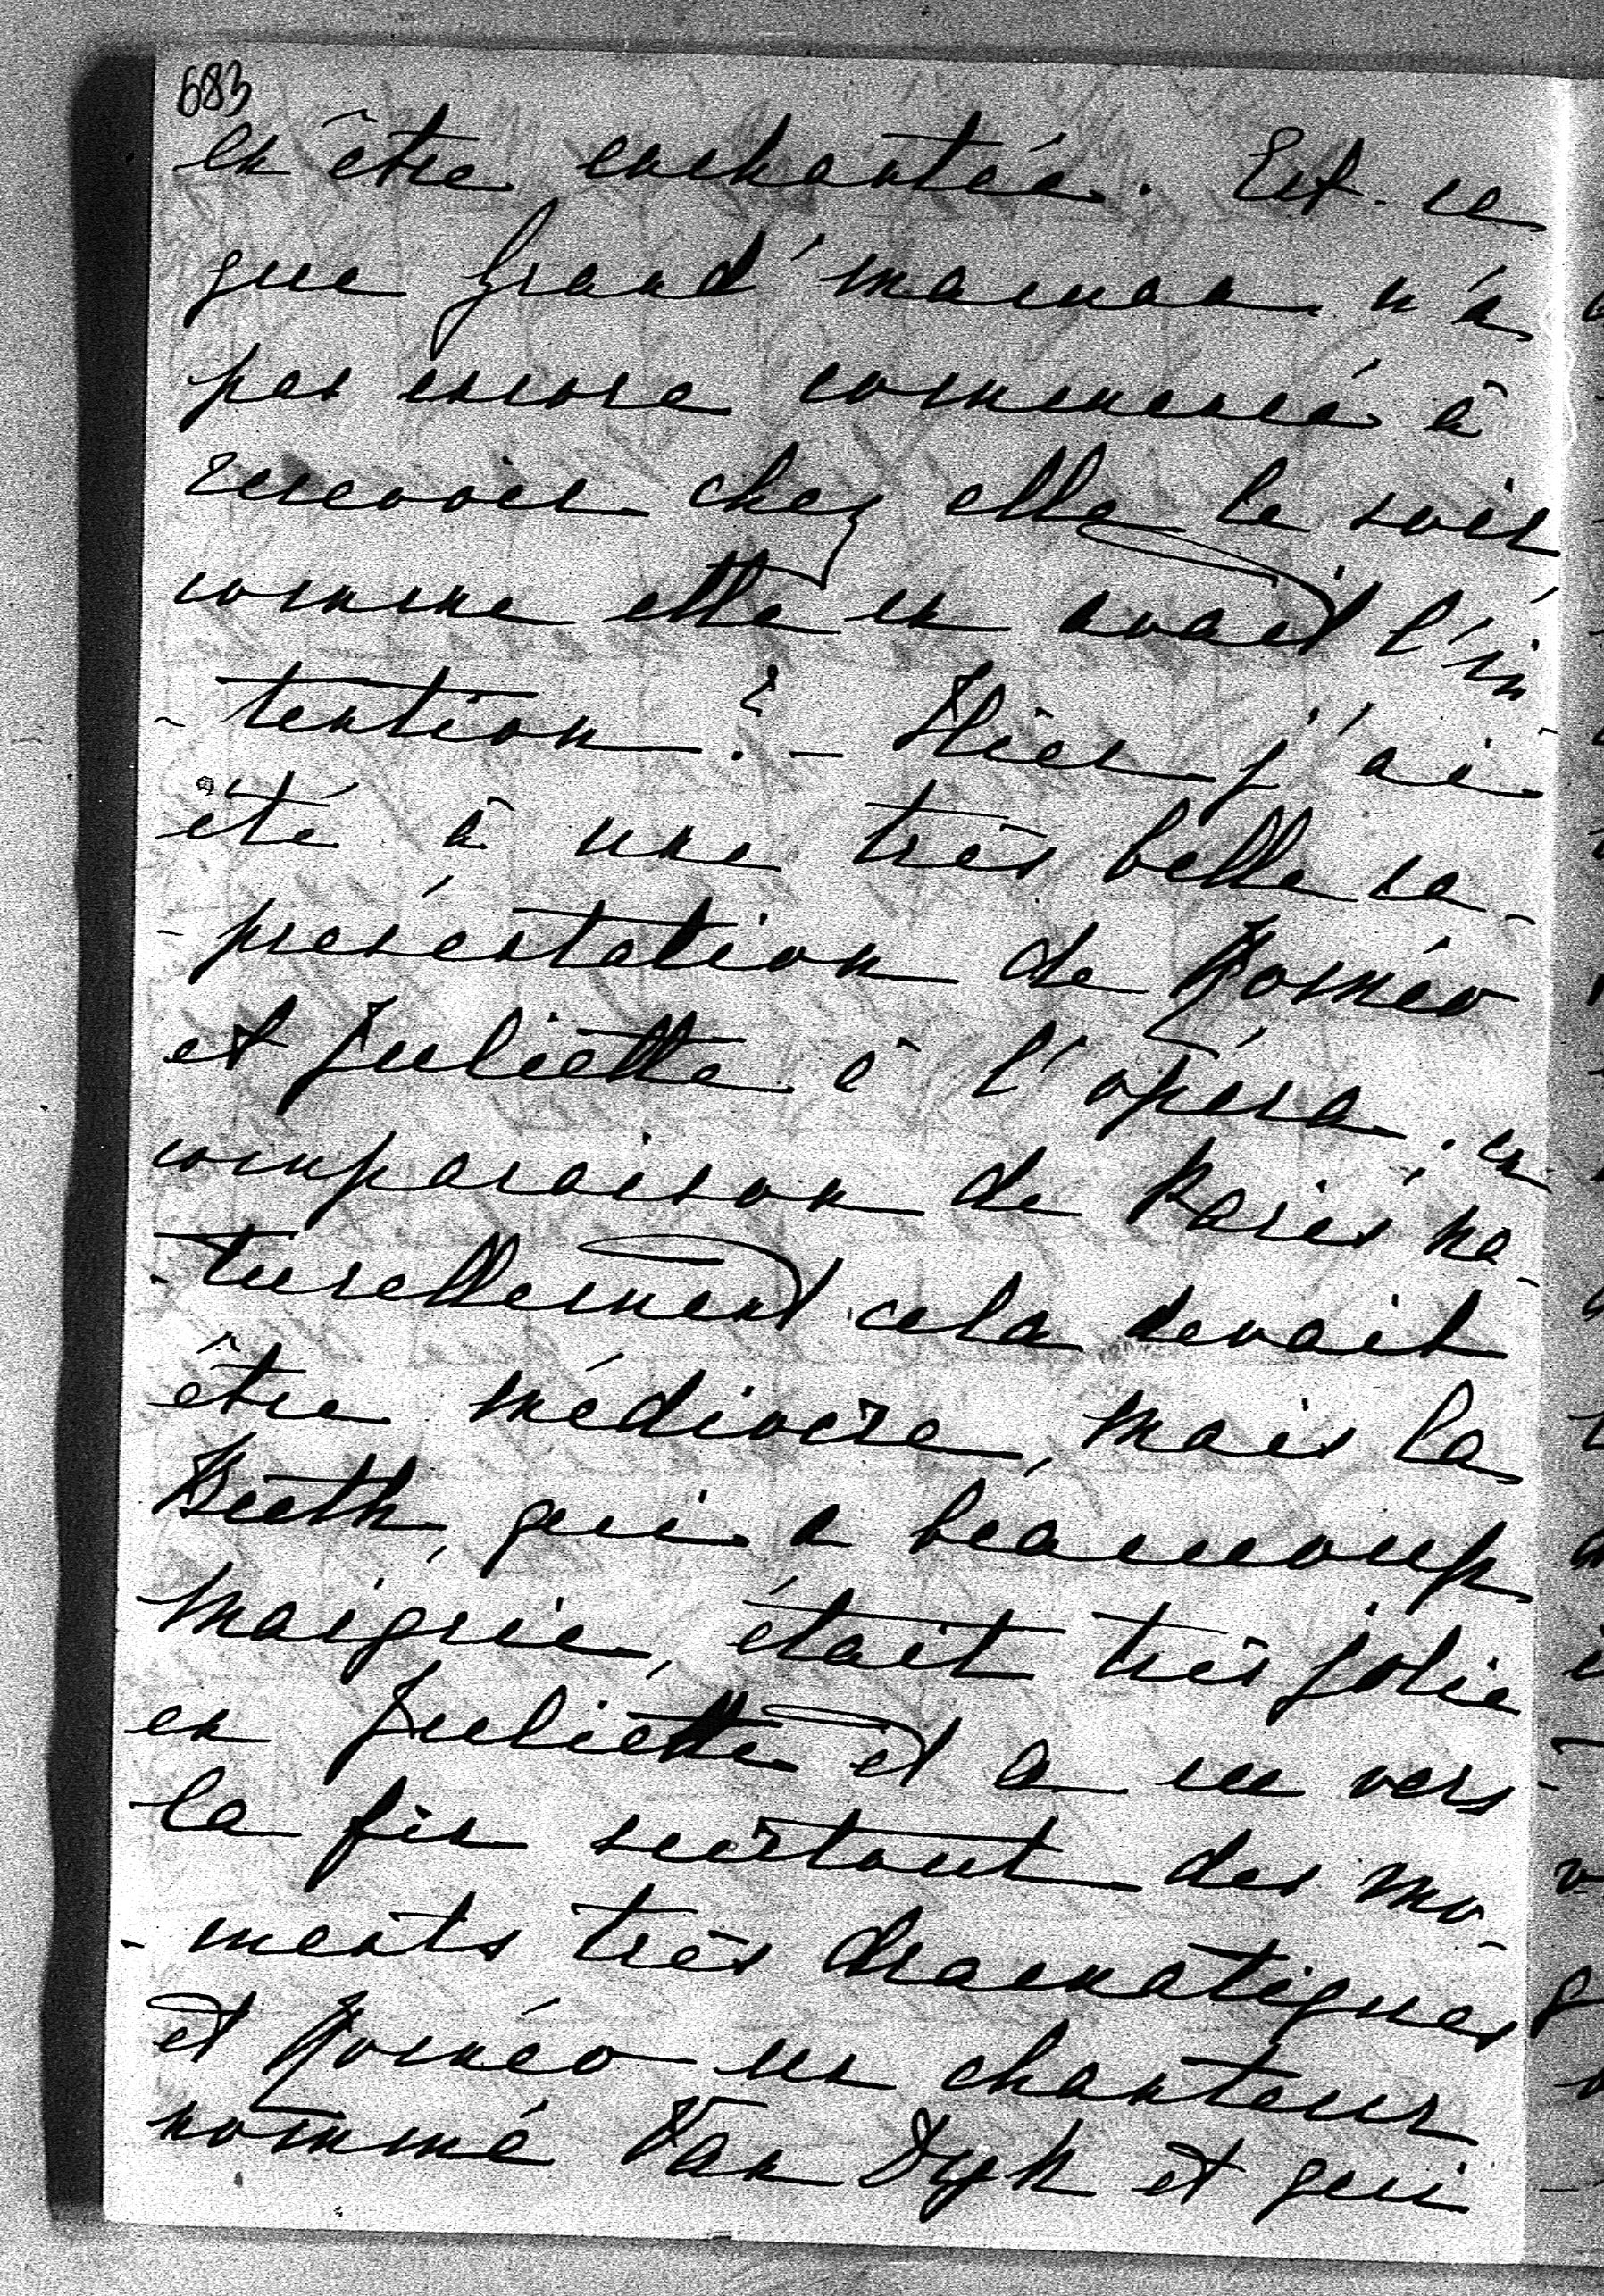 683
en être enchantée. Est-ce
que Grand'maman n'a
pas encore commencé à
recevoir chez elle le soir
comme elle en avait l'in-
-tention? - Hier j'ai
été à une très belle re-
-présentation de Roméo
et Juliette à l'opéra; en
comparaison de Paris na-
-turellement cela devait
être médiocre, mais la
Beeth, qui a beaucoup
maigrie, était très jolie
en Juliette et a eu vers
la fin surtout des mo-
-ments très dramatiques
et Roméo un chanteur
nommé Van Dyk et qui